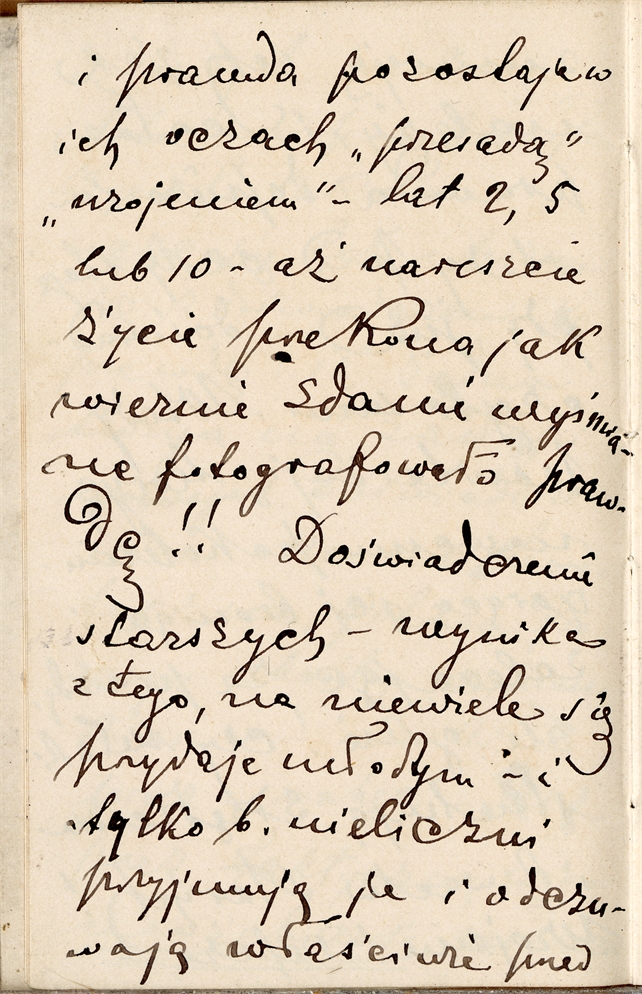 i prawda pozostaje w
ich oczach „przesadą"
„urojeniem" - lat 2, 5
lub 10 - aż nareszcie
życie przekona jak
wiernie zdanie wyśmia-
ne fotografowało praw-
dę!! Doświadczenie
starszych - wynika
z tego, na niewiele się
przydaje młodym - i
tylko b. nieliczni
przyjmują je i odczu-
wają właściwie przed